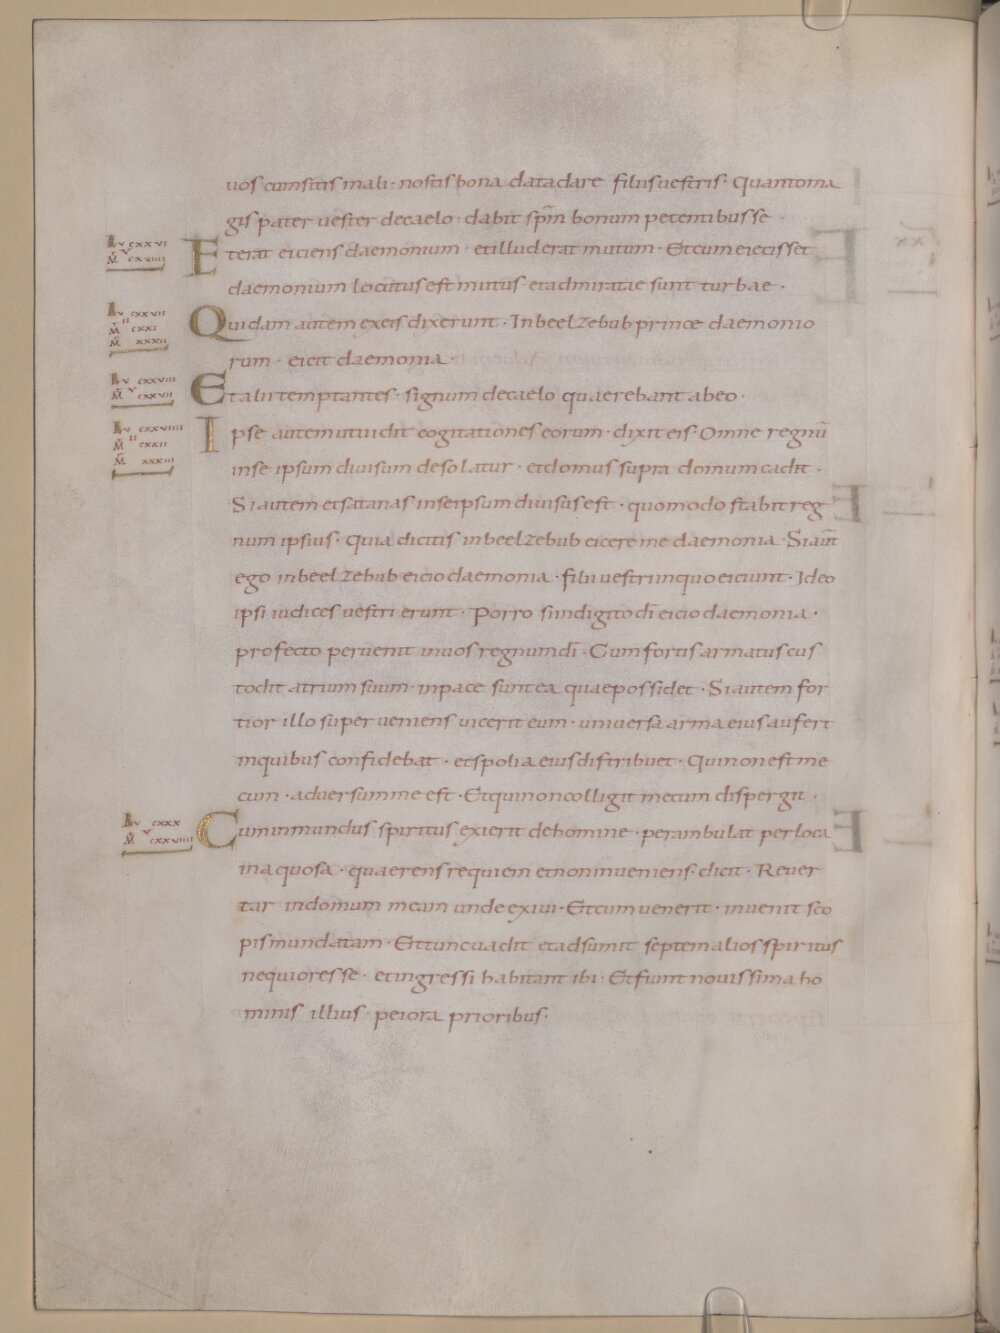 uos cum sitis mali · nostis bona data dare filiis uestris · Quanto ma
gis pater uester de caelo · dabit sp̄m bonum petentibus se ·
LV CXXVI
M̄ V CXVIIII
Et erat eiciens daemonium · et illud erat mutum · Et cum eiecisset
daemonium locutus est mutus · et admiratae sunt turbae ·
LV CXXVII
M̄ II CXXI
M̄ XXXII
Quidam autem ex eis dixerunt · In beelzebub prince daemonio
rum · eicit daemonia ·
LV CXXVIII
M̄ V CXXVII
Et alii temptantes · signum de caelo quaerebant ab eo ·
LV CXXVIIII
M̄ II CXXII
M̄ XXXIII
Ipse autem ut uidit cogitationes eorum · dixit eis · Omne regnū
in se ipsum diuisum desolatur · et domus supra domum cadit ·
Si autem et satanas in se ipsum diuisus est · quomodo stabit reg
num ipsius · Quia dicitis in beelzebub eicere me daemonia · Si aut̄
ego in beelzebub eicio daemonia · filii uestri in quo eiciunt · Ideo
ipsi iudices uestri erunt · Porro si in digito dī eicio daemonia ·
profecto peruenit in uos regnum dī · Cum fortis armatus cus
todit atrium suum · in pace sunt ea quae possidet · Si autem for
tior illo superueniens uicerit eum · uniuersa arma eius aufert
in quibus confidebat · et spolia eius distribuet · Qui non est me
cum · aduersum me est · Et qui non colligit mecum dispergit ·
LV CXXX
M̄ V CXXVIIII
Cum inmundus spiritus exierit de homine · perambulat per loca
inaquosa · quaerens requiem et non inueniens · dicit · Reuer
tar in domum meam unde exiui · Et cum uenerit · inuenit sco
pis mundatam · Et tunc uadit et adsumit septem alios spiritus
nequiores se · et ingressi habitant ibi · Et fiunt nouissima ho
minis illius · peiora prioribus ·